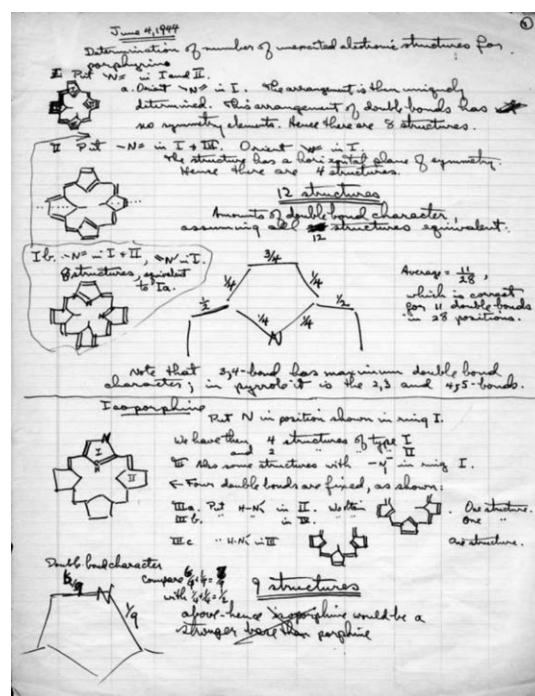 ①
June 4, 1944
Determination of number of unexcited electronic structures for
porphyrins
I Put N= in I and II.
a. Orient N= in I. The arrangement is then uniquely
determined. This arrangement of double bonds has
no symmetry elements. Hence there are 8 structures.
II Put -N= in I + III. Orient N= in I.
The structure has a horizontal plane of symmetry.
Hence there are 4 structures.
12 structures
Amounts of double bond character,
assuming all 12 structures equivalent.
I b. -N= in I + II, N in I.
8 structures, equivalent
to Ia.
3/4
1/4 1/4
1/2 1/2
1/4 1/4
N
Average = 11/28,
which is correct
for 11 double bonds
in 28 positions.
Note that 3,4-bond has maximum double bond
character; in pyrrole it is the 2,3 and 4,5-bonds.
Isoporphine
Put N in position shown in ring I.
We have then 4 structures of type I
and 2 " " " II
III Also some structures with in ring I.
← Four double bonds are fixed, as shown:
IIIa. Put H-N in II. We obtain One structure.
III b. " in IV. One "
III c " H-N in III One structure.
N
I
II
Double bond character
/9
N
1/9
Compare
with 1/4 + 1/4 = 1/2
9 structures
above - hence isoporphine would be a
stronger base than porphine